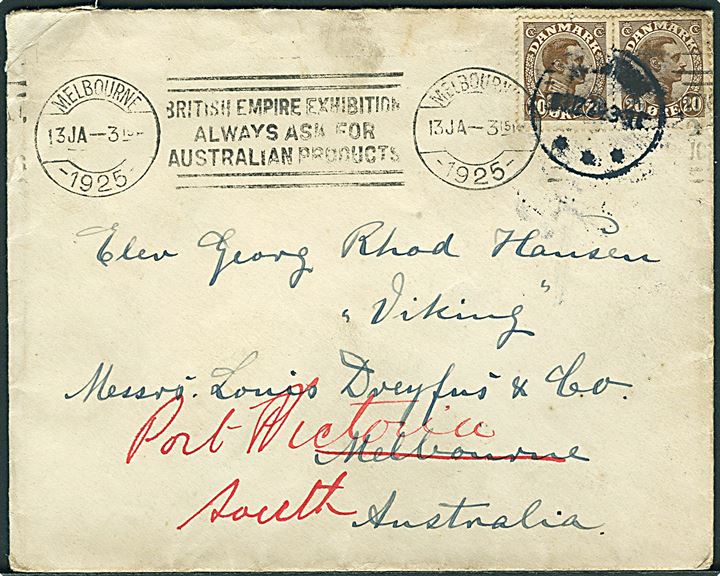 DANMARK DANMARK
20 ØRE 20 20 ØRE 20
MELBOURNE
13JA—3
-1925-
BRITISH EMPIRE EXHIBITION
ALWAYS ASK FOR
AUSTRALIAN PRODUCTS
MELBOURNE
13JA—3
-1925-
Elev Georg Rhod Hansen
"Viking"
Messrs. Louis Dreyfus & Co.
Port Victoria
Melbourne
South Australia.